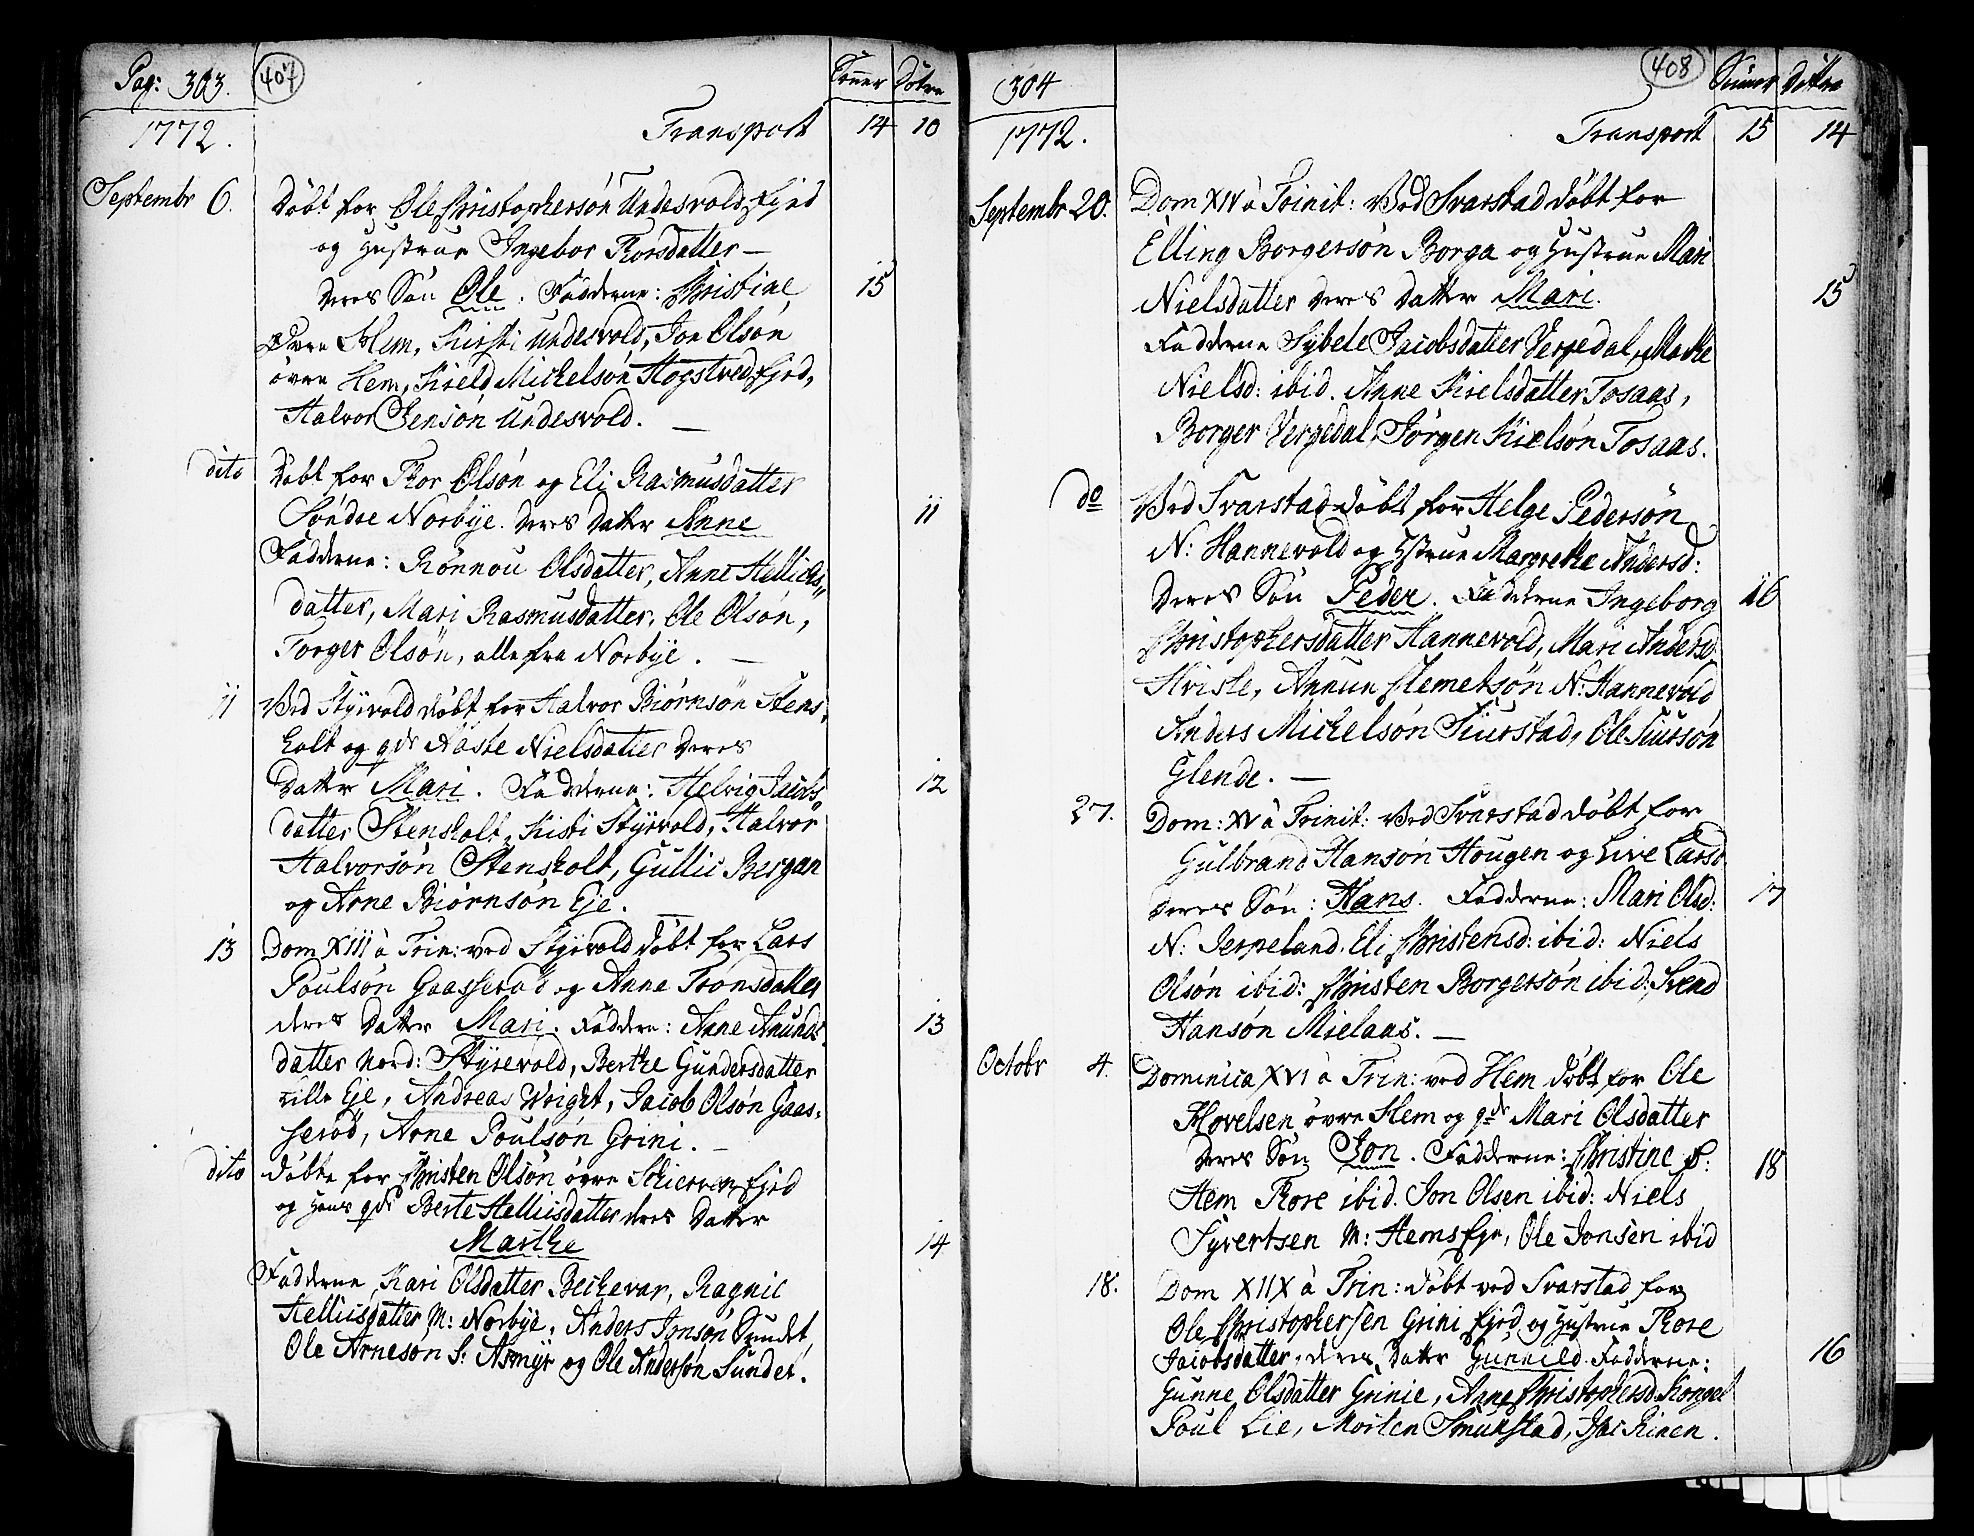 Pag: 303. 407 Sönner Döttre
1772. Transport 14 10
Septembr 6. Döbt for Ole Christophersön Undesvold Ejed
og Hustrue Ingebor Thorsdatter —
deres Sön Ole. Fadderne: Christine 15
Övre Hem, Kirsti Undesvold, Jon Olsön
övre Hem, Kield Michelsön Hogstved Ejed,
Halvor Jensön Undesvold. —
dito Döbt for Thor Olsön og Eli Rasmusdatter
Söndre Norbÿe. deres Datter Anne 11
Fadderne: Rönnou Olsdatter, Anne Hellichs„
datter, Mari Rasmusdatter, Ole Olsön,
Torger Olsön, alle fra Norbÿe. —
11 Ved Styrvold döbt for Halvor Biörnsön Stens„
holt og qde Aaste Nielsdatter deres
Datter Mari. Fadderne: Helvig Jacobs„ 12
datter Stensholt, Kisti Styrvold, Halvor
Halvorsön Stensholt, Gullic Bergan
og Arne Biörnsön Eje. —
13 Dom XIII à Trin: ved Styrvold döbt for Lars
Poulsön Gaasseröd og Anne Trönsdatter
deres Datter Mari. Faddere: Anne Amunds„ 13
datter Nord: Styrevold, Berthe Gundersdatter
Lille Eje, Andreas Wright, Jacob Olsön Gaas„
seröd, Arne Poulsön Grini. —
dito döbte for Christen Olsön övre Skierven Ejed
og Hans qde Berte Hellicsdatter deres Datter
Marthe 14
Fadderne, Kari Olsdatter Bechevar, Ragnil
Hellicsdatter M: Norbÿe, Anders Jonsön Sundet,
Ole Arnesön S: Asmyr og Ole Andersön Sundet.
304 408 Sönner Döttre
1772. Transport 15 14
Septembr 20. Dom XIV à Trinit: Ved Svarstad döbt for
Elling Borgersön Borga og Hustrue Mari
Nielsdatter deres Datter Mari. 15
Fadderne Sybele Jacobsdatter Verpedal, Marthe
Nielsd: ibid. Anne Kielsdatter Tosaas,
Borger Verpedal, Jörgen Kielsön Tosaas.
do Ved Svarstad döbt for Helge Pedersön
N: Hannevold og Hstrue Margrethe Andersd:
deres Sön Peder. Fadderne Ingeborg 16
Christophersdatter Hannevold, Mari Andersd
Hviste, Annun Clemetsön N: Hannevold
Anders Michelsön Siurstad, Ole Siursön
Glende. —
27. Dom: XV à Trinit: Ved Svarstad döbt for
Gulbrand Hansön Hougen og Live Larsd
deres Sön: Hans. Fadderne: Mari Olsd: 17
N: Jerpeland, Eli Christensd: ibid: Niels
Olsön ibid: Christen Borgersön ibid: Svend
Hansön Mielaas. —
Octobr 4. Dominica XVI à Trin: ved Hem döbt for Ole
Hovelsen övre Hem og qde Mari Olsdatter
deres Sön Jon. Fadderne: Christine ö: 18
Hem Thore ibid. Jon Olsen ibid: Niels
Syvertsen M: Hems Eje, Ole Jonsen ibid
18. Dom XIIX à Trin: döbt ved Svarstad for
Ole Christophersen Grini Ejed og Hustrue Thore
Jacobsdatter, deres Datter Gunnild. Fadderne: 16
Gunne Olsdatter Grinie, Anne Christophersd:
Poul Lie, Morten Smukstad,